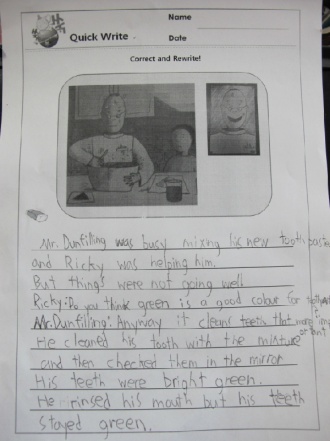 Name
Quick Write
Date
Correct and Rewrite!
Mr. Dunfilling was busy mixing his new tooth paste
and Ricky was helping him.
But things were not going well
Ricky: Do you think green is a good colour for
Mr. Dunfilling: Anyway it cleans teeth that more important
He cleaned his tooth with the mixture
and then checked them in the mirror
His teeth were bright green.
He rinsed his mouth but his teeth
stayed green.